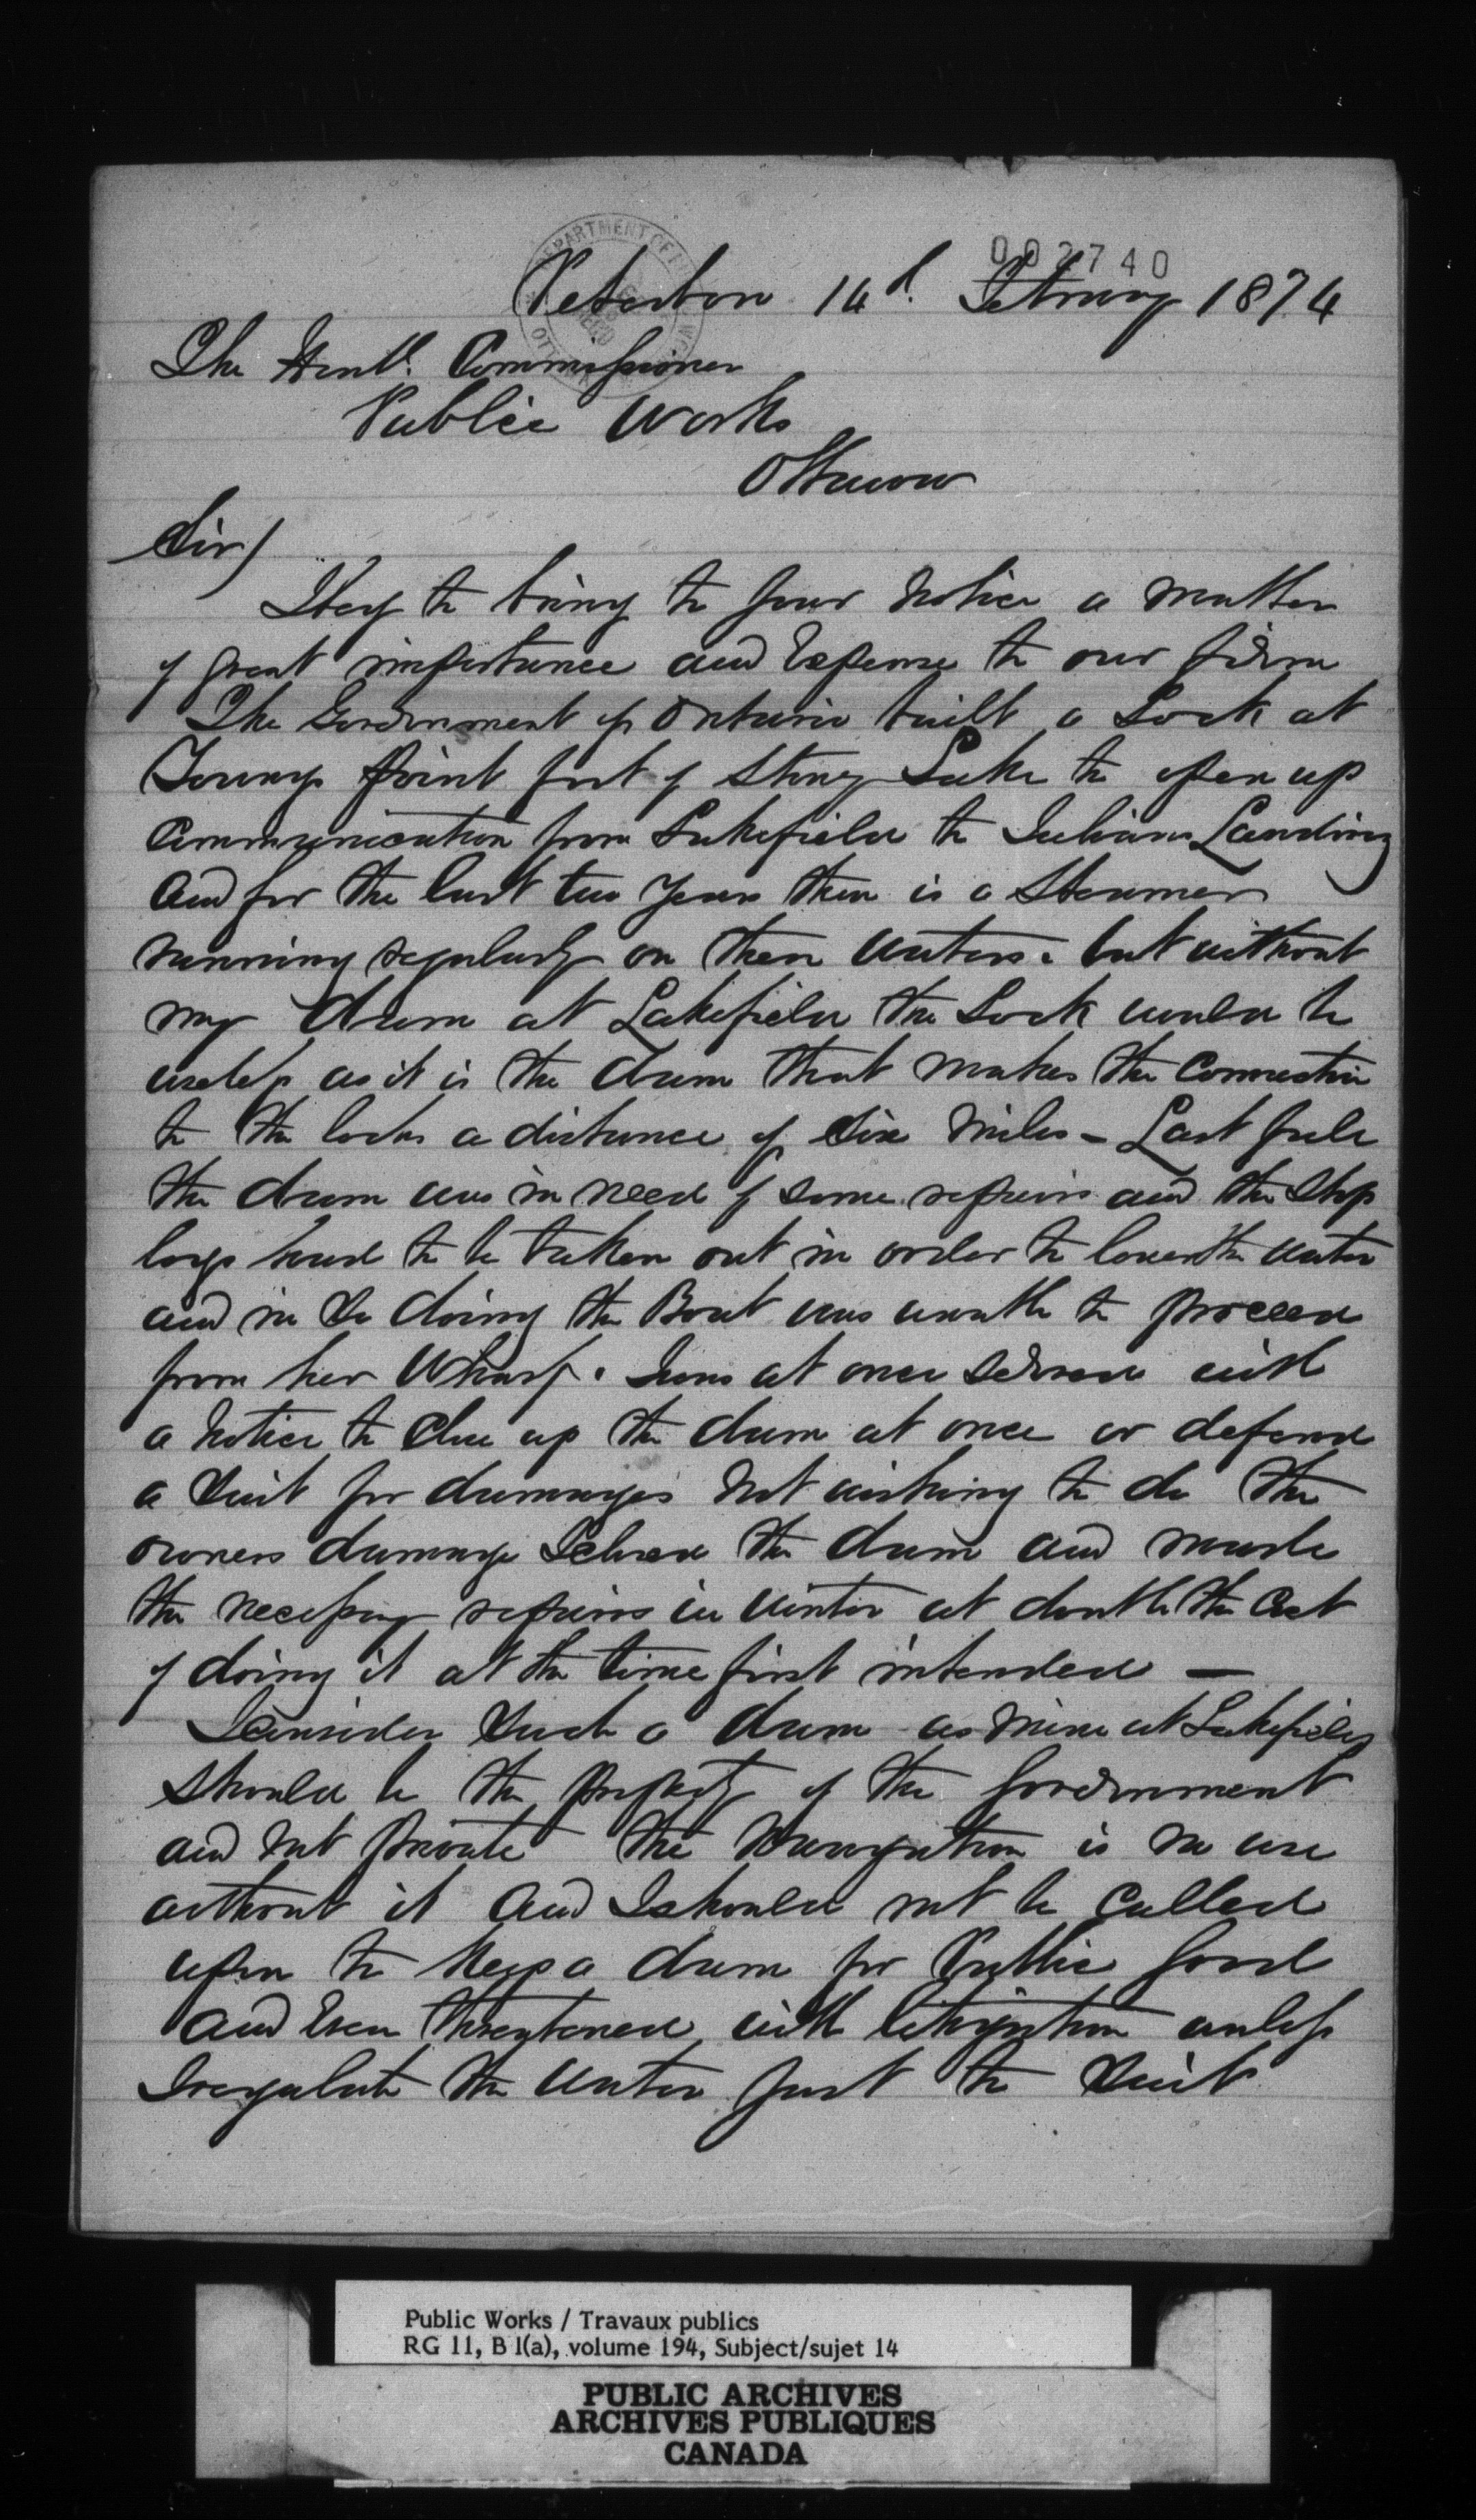 DEPARTMENT OF
002740
Peterboro 14th. February 1874
The Honbl. Commissioner
Public Works
Ottawa
Sir/
I beg to bring to your notice a matter
of great importance and Expense to our firm
The Government of Ontario built a Lock at
Youngs Point foot of Stony Lake to open up
Communication from Lakefield to Julians Landing
and for the last two years there is a Steamer
running regularly on these waters. but without
my dam at Lakefield the Lock would be
useless as it is the dam that makes the Connection
to the locks a distance of Six miles - Last fall
the dam was in need of some repairs and the Stop
logs had to be taken out in order to lower the water
and in So doing the Boat was unable to proceed
from her Wharf. I was at once Served with
a notice to Close up the dam at once or defend
a Suit for damages not wishing to do the
owners damage I closed the dam and made
the necessary repairs in winter at double the Cost
of doing it at the time first intended —
I consider Such a dam as mine at Lakefield
Should be the property of the Government
and not private the Navigation is no use
without it and I should not be called
upon to keep a dam for Public good
and Even threatened with litigation unless
I regulate the water just to Suit
Public Works / Travaux publics
RG 11, B 1(a), volume 194, Subject/sujet 14
PUBLIC ARCHIVES
ARCHIVES PUBLIQUES
CANADA